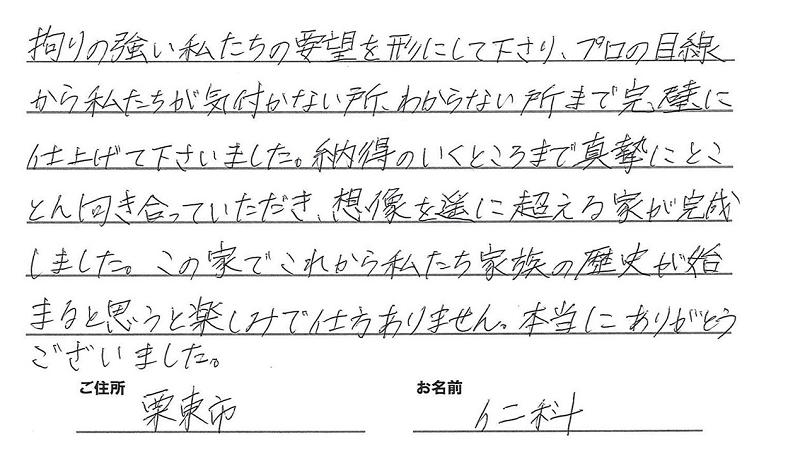 拘りの強い私たちの要望を形にして下さり、プロの目線
から私たちが気付かない所、わからない所まで完璧に
仕上げて下さいました。納得のいくところまで真摯にとこ
とん向き合っていただき、想像を遥に超える家が完成
しました。この家でこれから私たち家族の歴史が始
まると思うと楽しみで仕方ありません。本当にありがとう
ございました。
ご住所 栗東市 お名前 仁科